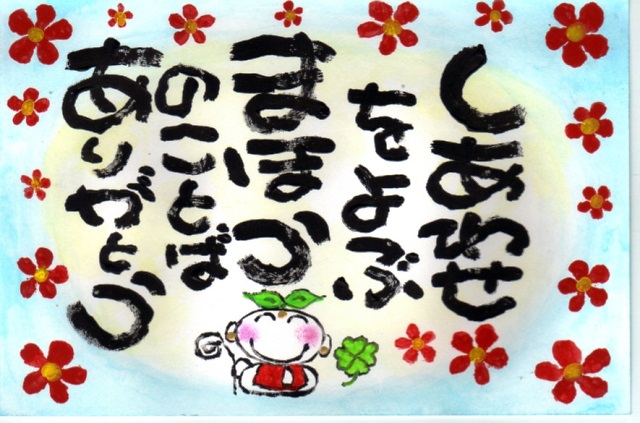 しあわせ
をよぶ
まほう
のことば
ありがとう